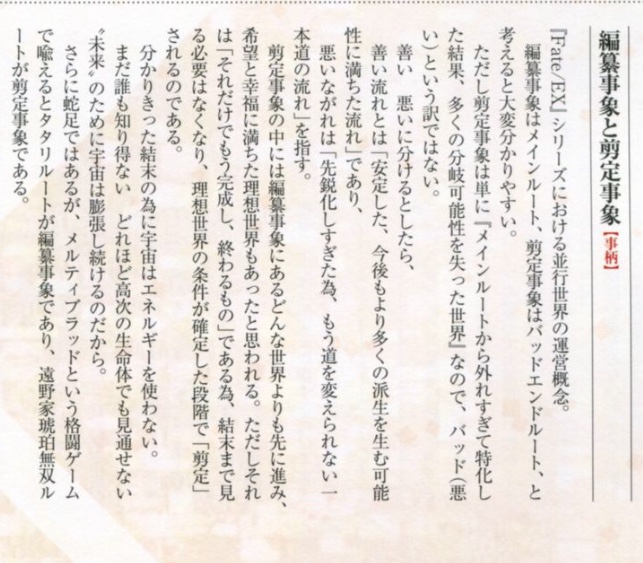 編纂事象と剪定事象【事柄】
『Fate/EX』シリーズにおける並行世界の運営概念。
編纂事象はメインルート、剪定事象はバッドエンドルート、と
考えると大変分かりやすい。
ただし剪定事象は単に『メインルートから外れすぎて特化し
た結果、多くの分岐可能性を失った世界』なので、バッド（悪
い）という訳ではない。
善い　悪いに分けるとしたら、
善い流れとは「安定した、今後もより多くの派生を生む可能
性に満ちた流れ」であり、
悪いながれは「先鋭化しすぎた為、もう道を変えられない一
本道の流れ」を指す。
剪定事象の中には編纂事象にあるどんな世界よりも先に進み、
希望と幸福に満ちた理想世界もあったと思われる。ただしそれ
は「それだけでもう完成し、終わるもの」である為、結末まで見
る必要はなくなり、理想世界の条件が確定した段階で「剪定」
されるのである。
分かりきった結末の為に宇宙はエネルギーを使わない。
まだ誰も知り得ない　どれほど高次の生命体でも見通せない
〝未来〟のために宇宙は膨張し続けるのだから。
さらに蛇足ではあるが、メルティブラッドという格闘ゲーム
で喩えるとタタリルートが編纂事象であり、遠野家琥珀無双ル
ートが剪定事象である。